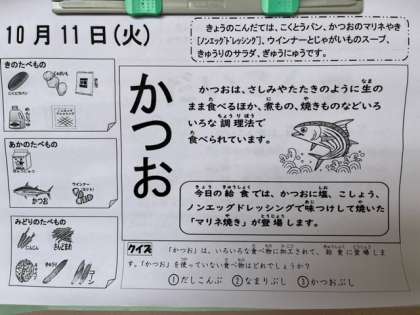 10月11日(火)
きょうのこんだては、こくとうパン、かつおのマリネやき
[ノンエッグドレッシング]、ウインナーとじゃがいものスープ、
きゅうりのサラダ、ぎゅうにゅうです。
きのたべもの
こくとうパン
あかのたべもの
かつお
ウインナー
みどりのたべもの
にんじん
かつお
かつおは、さしみやたたきのように生の
まま食べるほか、煮もの、焼きものなどいろ
いろな調理法で
食べられています。
今日の給食では、かつおに塩、こしょう、
ノンエッグドレッシングで味つけして焼いた
「マリネ焼き」が登場します。
クイズ 「かつお」は、いろいろな食べ物に加工されて、給食に登場しま
す。「かつお」を使っていない食べ物はどれでしょうか？
①だしこんぶ ②なまりぶし ③かつおぶし